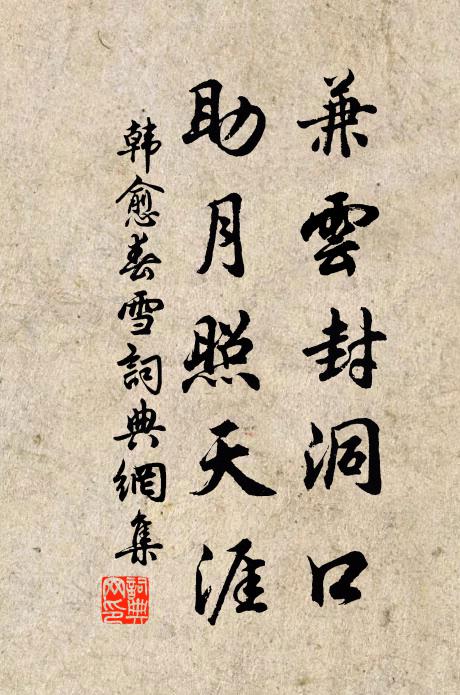 兼雲封洞口
助月照天涯
韩愈春雪詞典網集
詞典网印